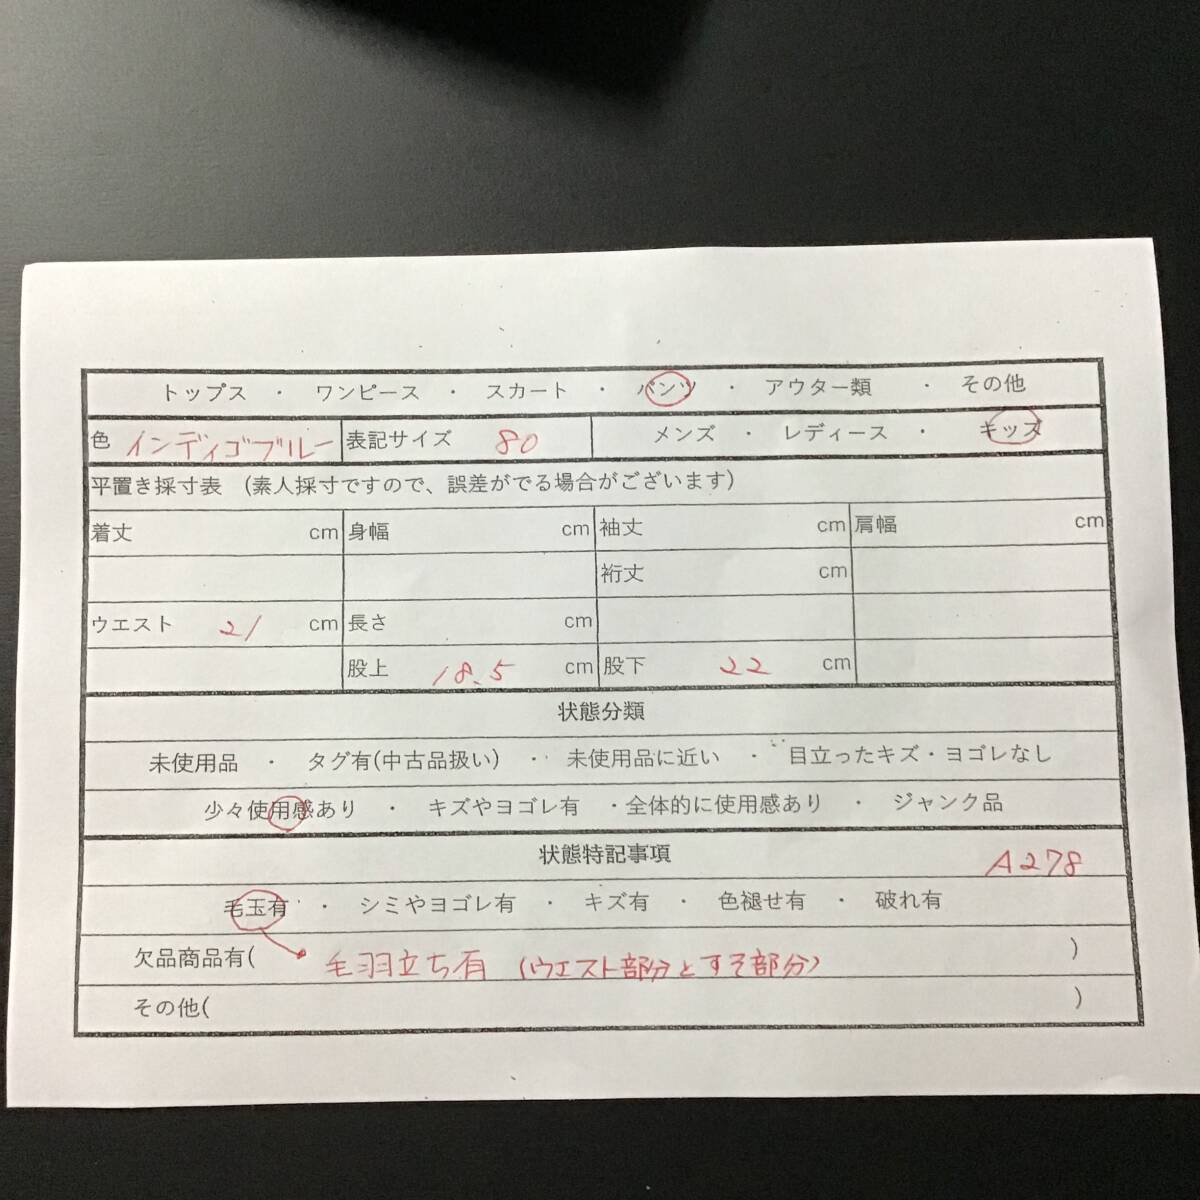 トップス ・ ワンピース ・ スカート ・ パンツ ・ アウター類 ・ その他
色 インディゴブルー 表記サイズ 80 メンズ ・ レディース ・ キッズ
平置き採寸表 (素人採寸ですので、誤差がでる場合がございます)
着丈 cm 身幅 cm 袖丈 cm 肩幅 cm
裄丈 cm
ウエスト 21 cm 長さ cm
股上 18.5 cm 股下 22 cm
状態分類
未使用品 ・ タグ有(中古品扱い) ・ 未使用品に近い ・ 目立ったキズ・ヨゴレなし
少々使用感あり ・ キズやヨゴレ有 ・全体的に使用感あり ・ ジャンク品
状態特記事項 A278
毛玉有 ・ シミやヨゴレ有 ・ キズ有 ・ 色褪せ有 ・ 破れ有
欠品商品有( 毛羽立ち有 (ウエスト部分とすそ部分) )
その他( )